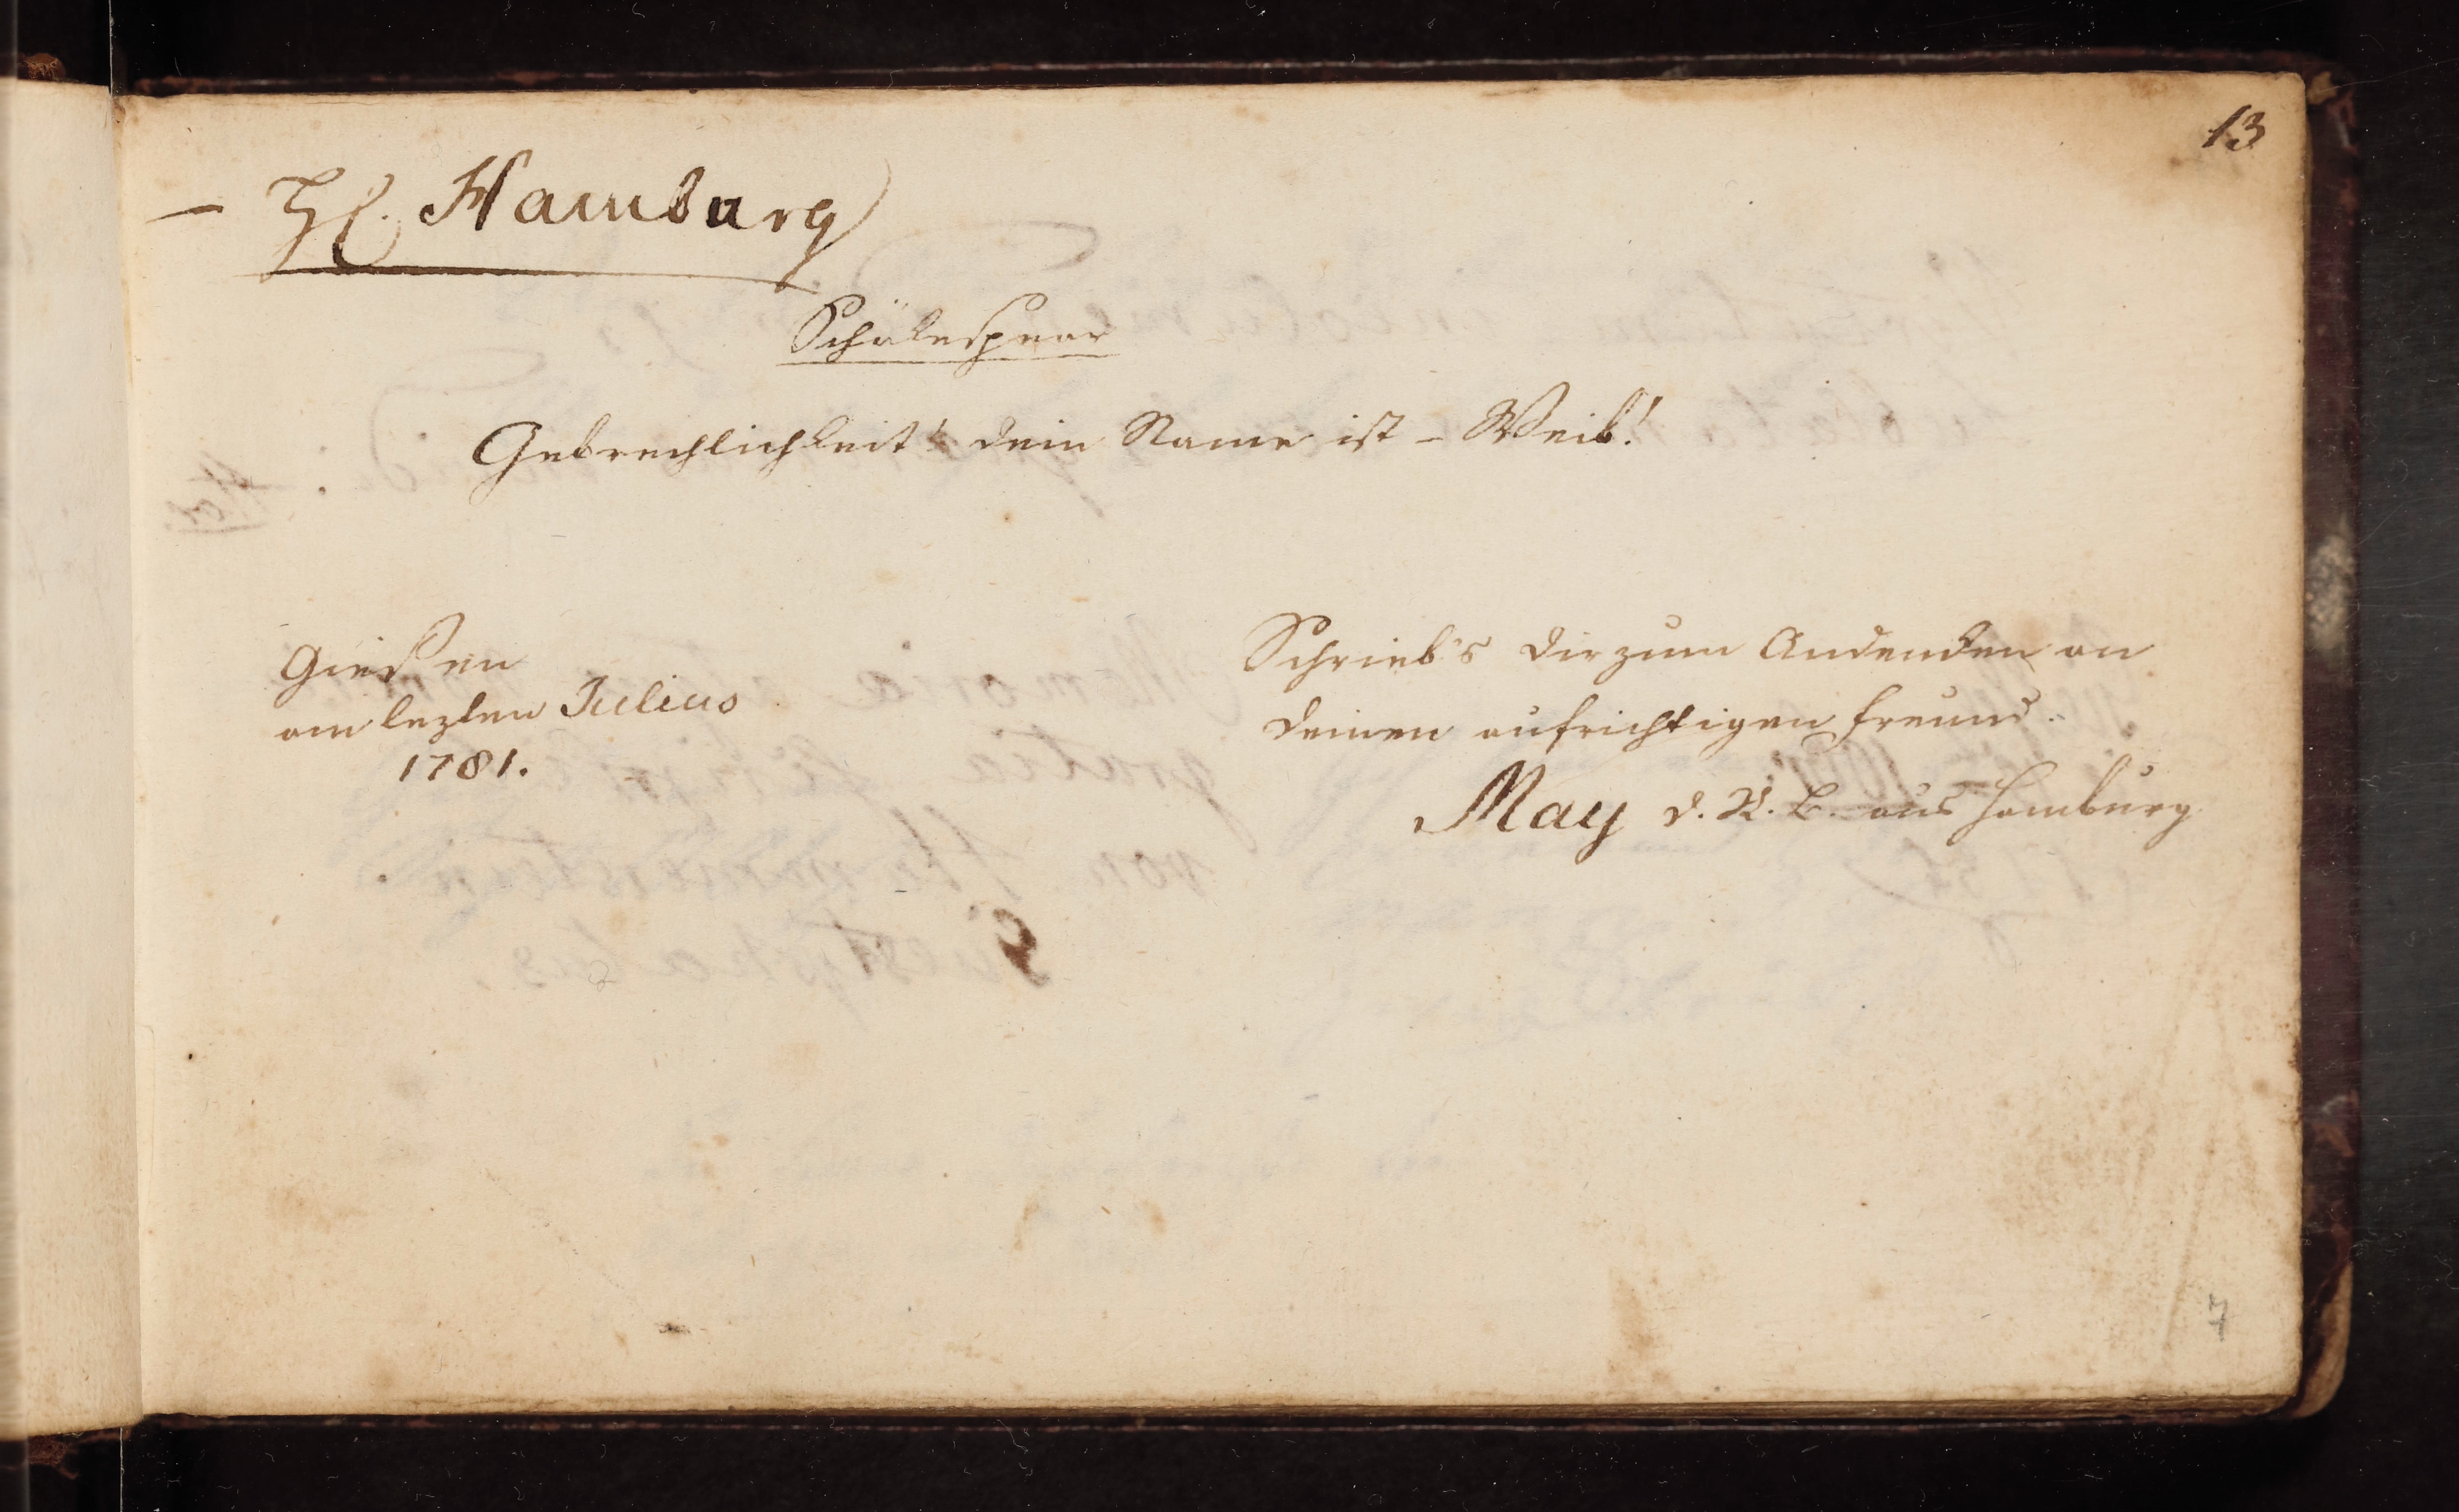 13
– H. Hamburg
Schäkespear
Gebrechlichkeit! dein Name ist – Weib!
Gießen
am lezten Julius
1781.
Schrieb's dir zum Andenken an
deinen aufrichtigen Freund.
May d. R. B. aus Hamburg
7